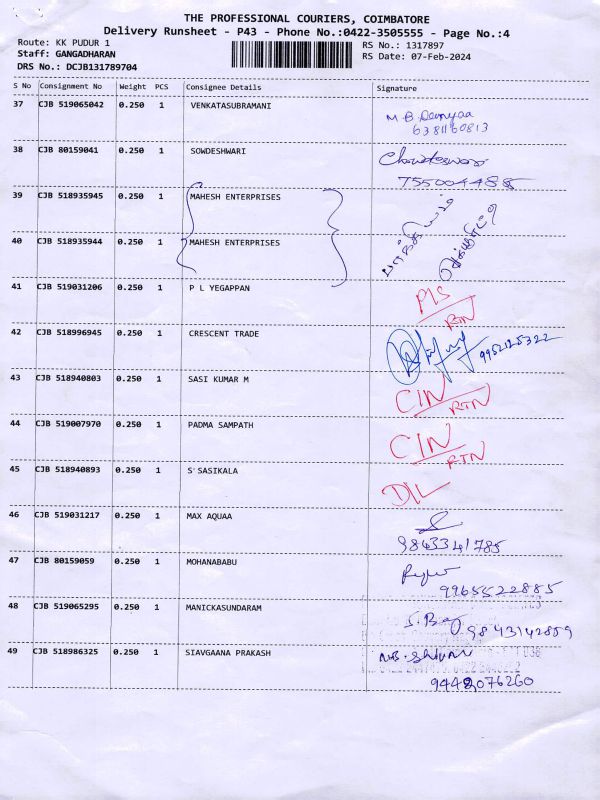 THE PROFESSIONAL COURIERS, COIMBATORE
Delivery Runsheet - P43 - Phone No.:0422-3505555 - Page No.:4
Route: KK PUDUR 1
RS No.: 1317897
Staff: GANGADHARAN
RS Date: 07-Feb-2024
DRS No.: DCJB131789704
S No Consignment No Weight PCS Consignee Details Signature
37 CJB 519065042 0.250 1 VENKATASUBRAMANI M.B.
6381160813
38 CJB 80159041 0.250 1 SOWDESHWARI
755004488
39 CJB 518935945 0.250 1 MAHESH ENTERPRISES
40 CJB 518935944 0.250 1 MAHESH ENTERPRISES
41 CJB 519031206 0.250 1 P L YEGAPPAN
RTN
42 CJB 518996945 0.250 1 CRESCENT TRADE 9952125322
43 CJB 518940803 0.250 1 SASI KUMAR M CIN
RTN
44 CJB 519007970 0.250 1 PADMA SAMPATH CIN
RTN
45 CJB 518940893 0.250 1 S SASIKALA D/L
46 CJB 519031217 0.250 1 MAX AQUAA
9843341785
47 CJB 80159059 0.250 1 MOHANABABU
9965522885
48 CJB 519065295 0.250 1 MANICKASUNDARAM
9843142859
49 CJB 518986325 0.250 1 SIAVGAANA PRAKASH
9442076260